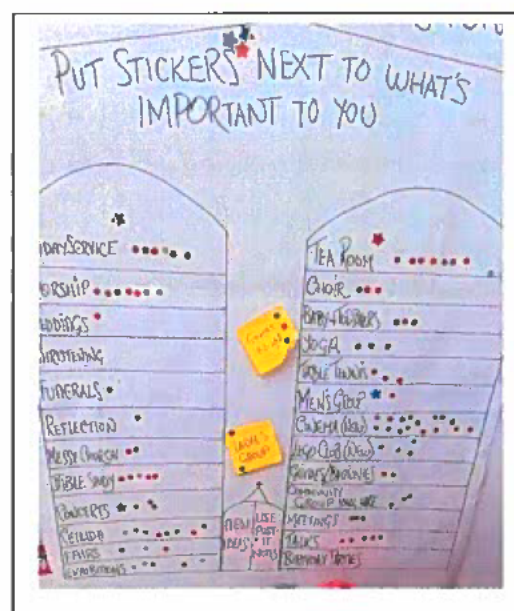 PUT STICKERS NEXT TO WHAT'S
IMPORTANT TO YOU
DAY SERVICE
ORSHIP
DDINGS
HRISTENING
FUNERALS
REFLECTION
MESSY CHURCH
BIBLE STUDY
CONCERTS
CEILIDH
FAIRS
EXHIBITIONS
LADIES
GROUP
NEW
IDEAS
USE
POST-
IT
NOTES
TEA ROOM
CHOIR
BABY + TODDLERS
YOGA
TABLE TENNIS
MEN'S GROUP
CINEMA (NEW)
LEGO CLUB (NEW)
GUIDES/BROWNIES
COMMUNITY
GROUP
MEETINGS
TALKS
BIRTHDAY PARTIES